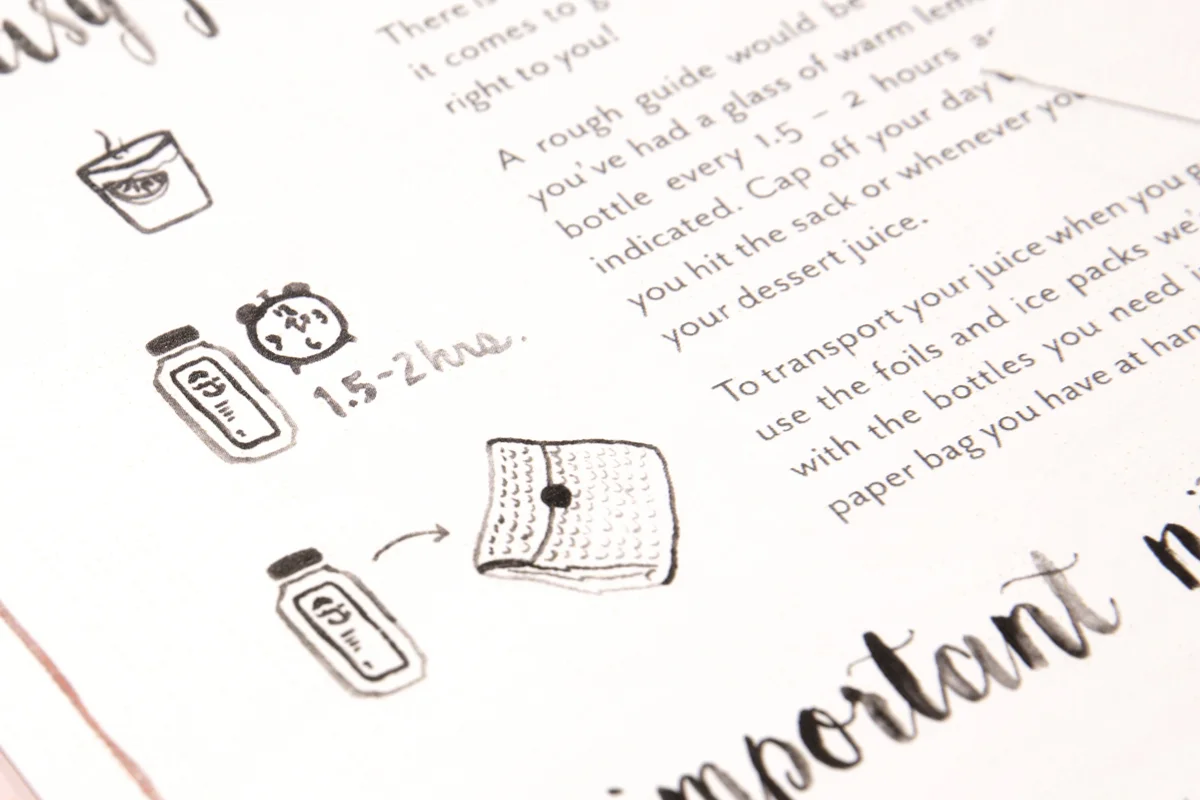 There is
it comes to
right to you!
A rough guide would be
you've had a glass of warm
bottle every 1.5 – 2 hours
indicated. Cap off your day
you hit the sack or whenever you
your dessert juice.
1.5-2hrs.
To transport your juice when you
use the foils and ice packs we'
with the bottles you need
paper bag you have at
important